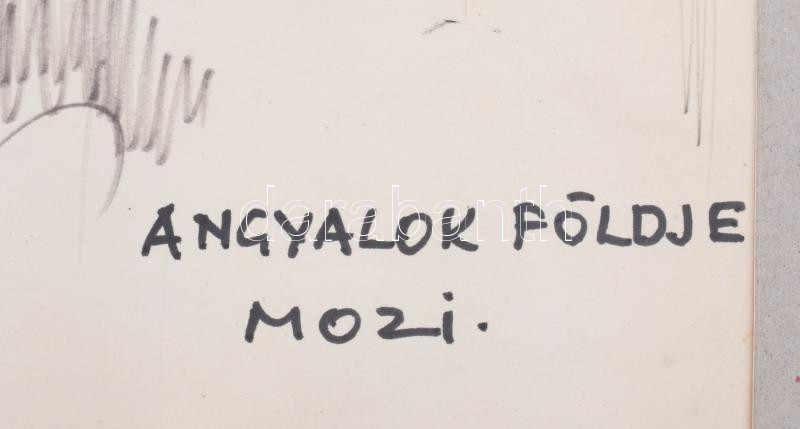 ANGYALOK FÖLDJE
MOZi.
darabanth